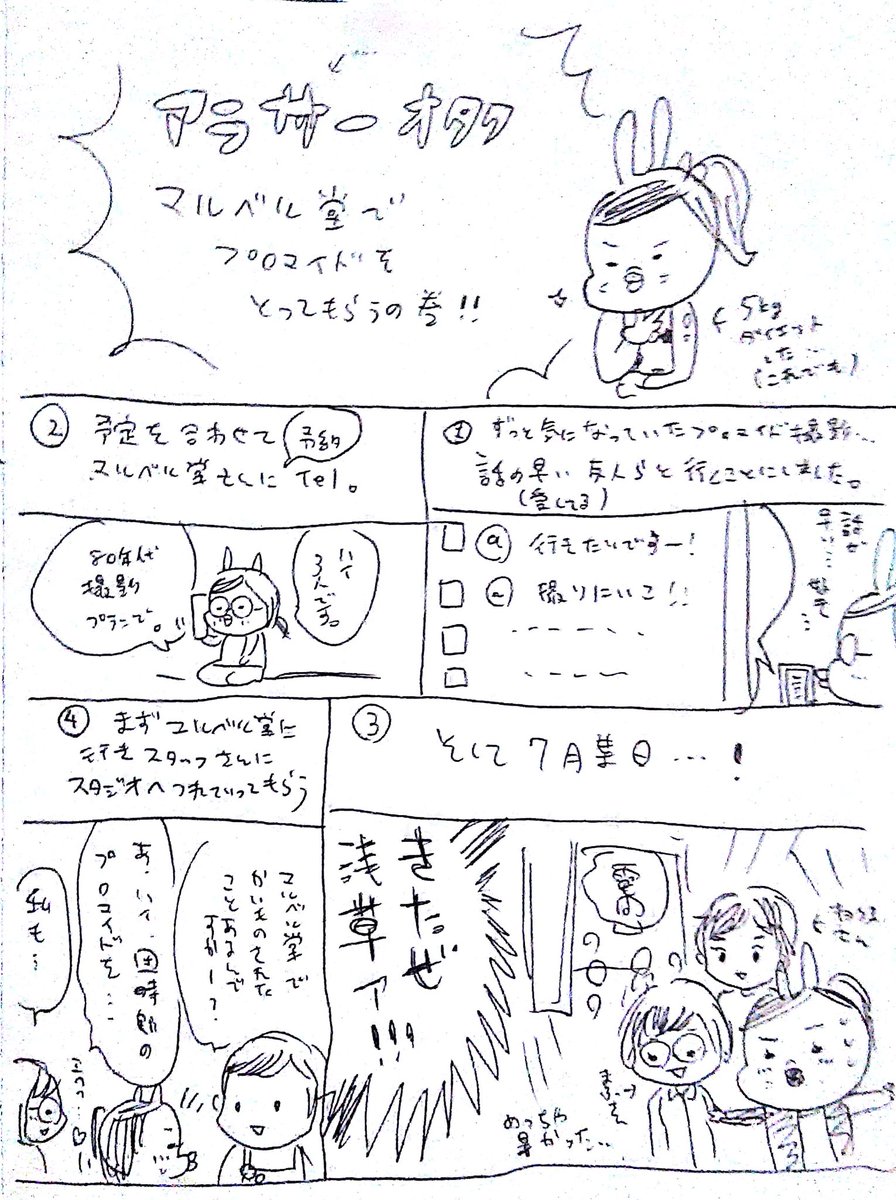 アラサーオタク
マルベル堂で
プロマイドを
とってもらうの巻!!
5kg
ダイエット
した…
(これでも)
① ずっと気になっていたプロマイド撮影…
話の早い友人らと行くことにしました。
(愛してる)
行きたいですー!
撮りにいこ!!
話が
早い…
好き…
② 予定を合わせて
予約
マルベル堂さんにTel。
ハイ
3人です。
80年代
撮影
プランで。
③ そして7月某日…!
きたぜ
浅草ァ!!!
めっちゃ
早かった…
④ まずマルベル堂に
行きスタッフさんに
スタジオへつれていってもらう
マルベル堂で
かいものされた
ことあるんで
すかー?
あ、ハイ、団時朗の
プロマイドを…
私も…